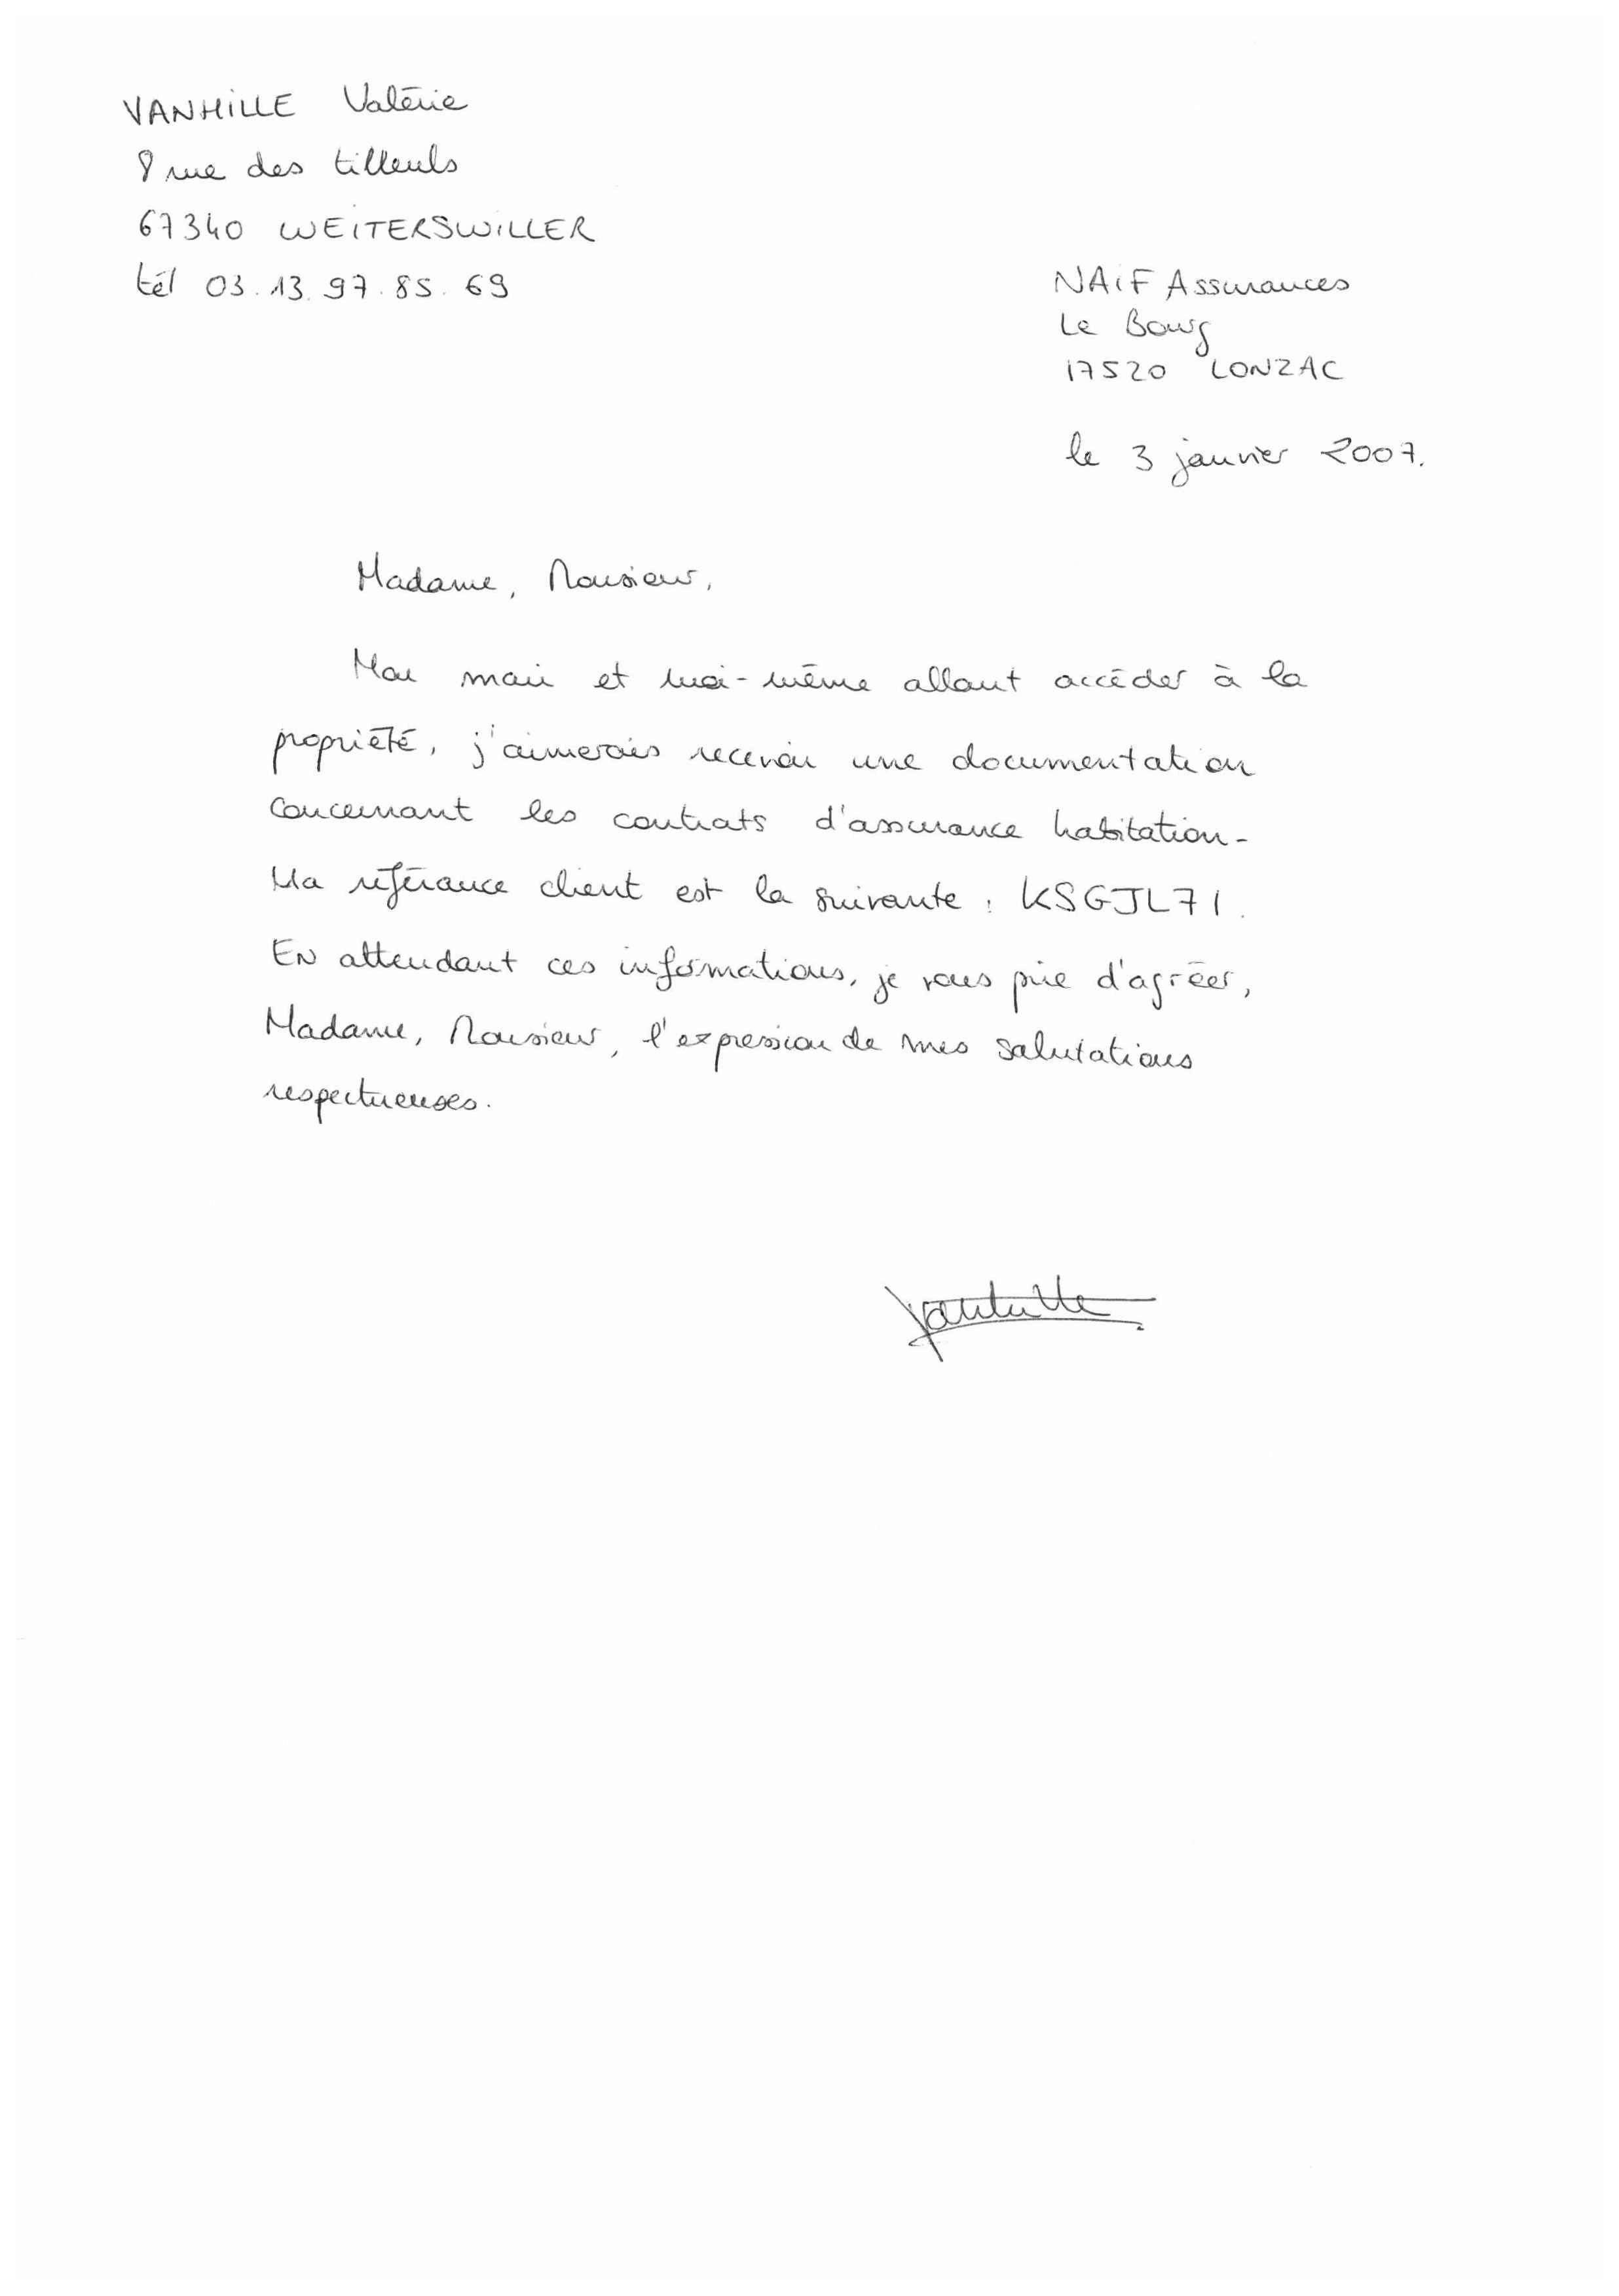 VANHILLE Valérie
8 rue des tilleuls
67340 WEITERSWILLER
tél 03.13.97.85.69
NAIF Assurances
Le Bourg
17520 LONZAC
le 3 janvier 2007.
Madame, Monsieur,
Mon mari et moi-même allant accéder à la
propriété, j'aimerais recevoir une documentation
concernant les contrats d'assurance habitation-
Ma référance client est la suivante : KSGJL71.
En attendant ces informations, je vous prie d'agréer,
Madame, Monsieur, l'expression de mes salutations
respectueuses.
Vanhille